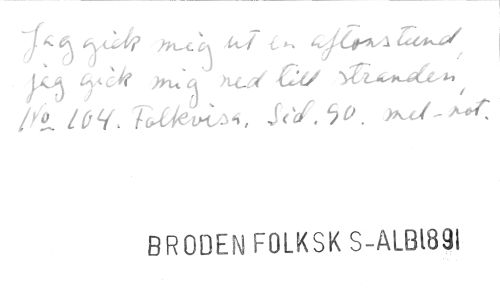 Jag gick mig ut en aftonstund,
jag gick mig ned till stranden,
No 104. Folkvisa. Sid. 90. mel-not.
BRODEN FOLKSK S-ALB1891